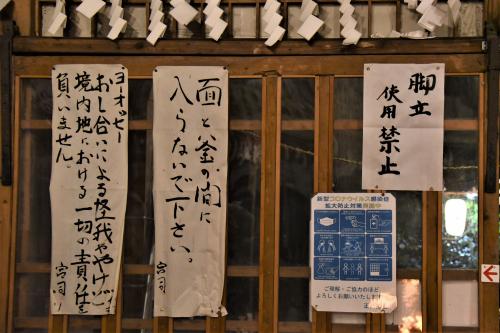 脚立
使用禁止
面と釜の間に
入らないで下さい。
宮司
ヨーオッセー
おし合いによる怪我ややけど
境内地における一切の責任を
負いません。
宮司
新型コロナウイルス感染症
拡大防止対策実施中
ご理解・ご協力のほど
よろしくお願いいたします